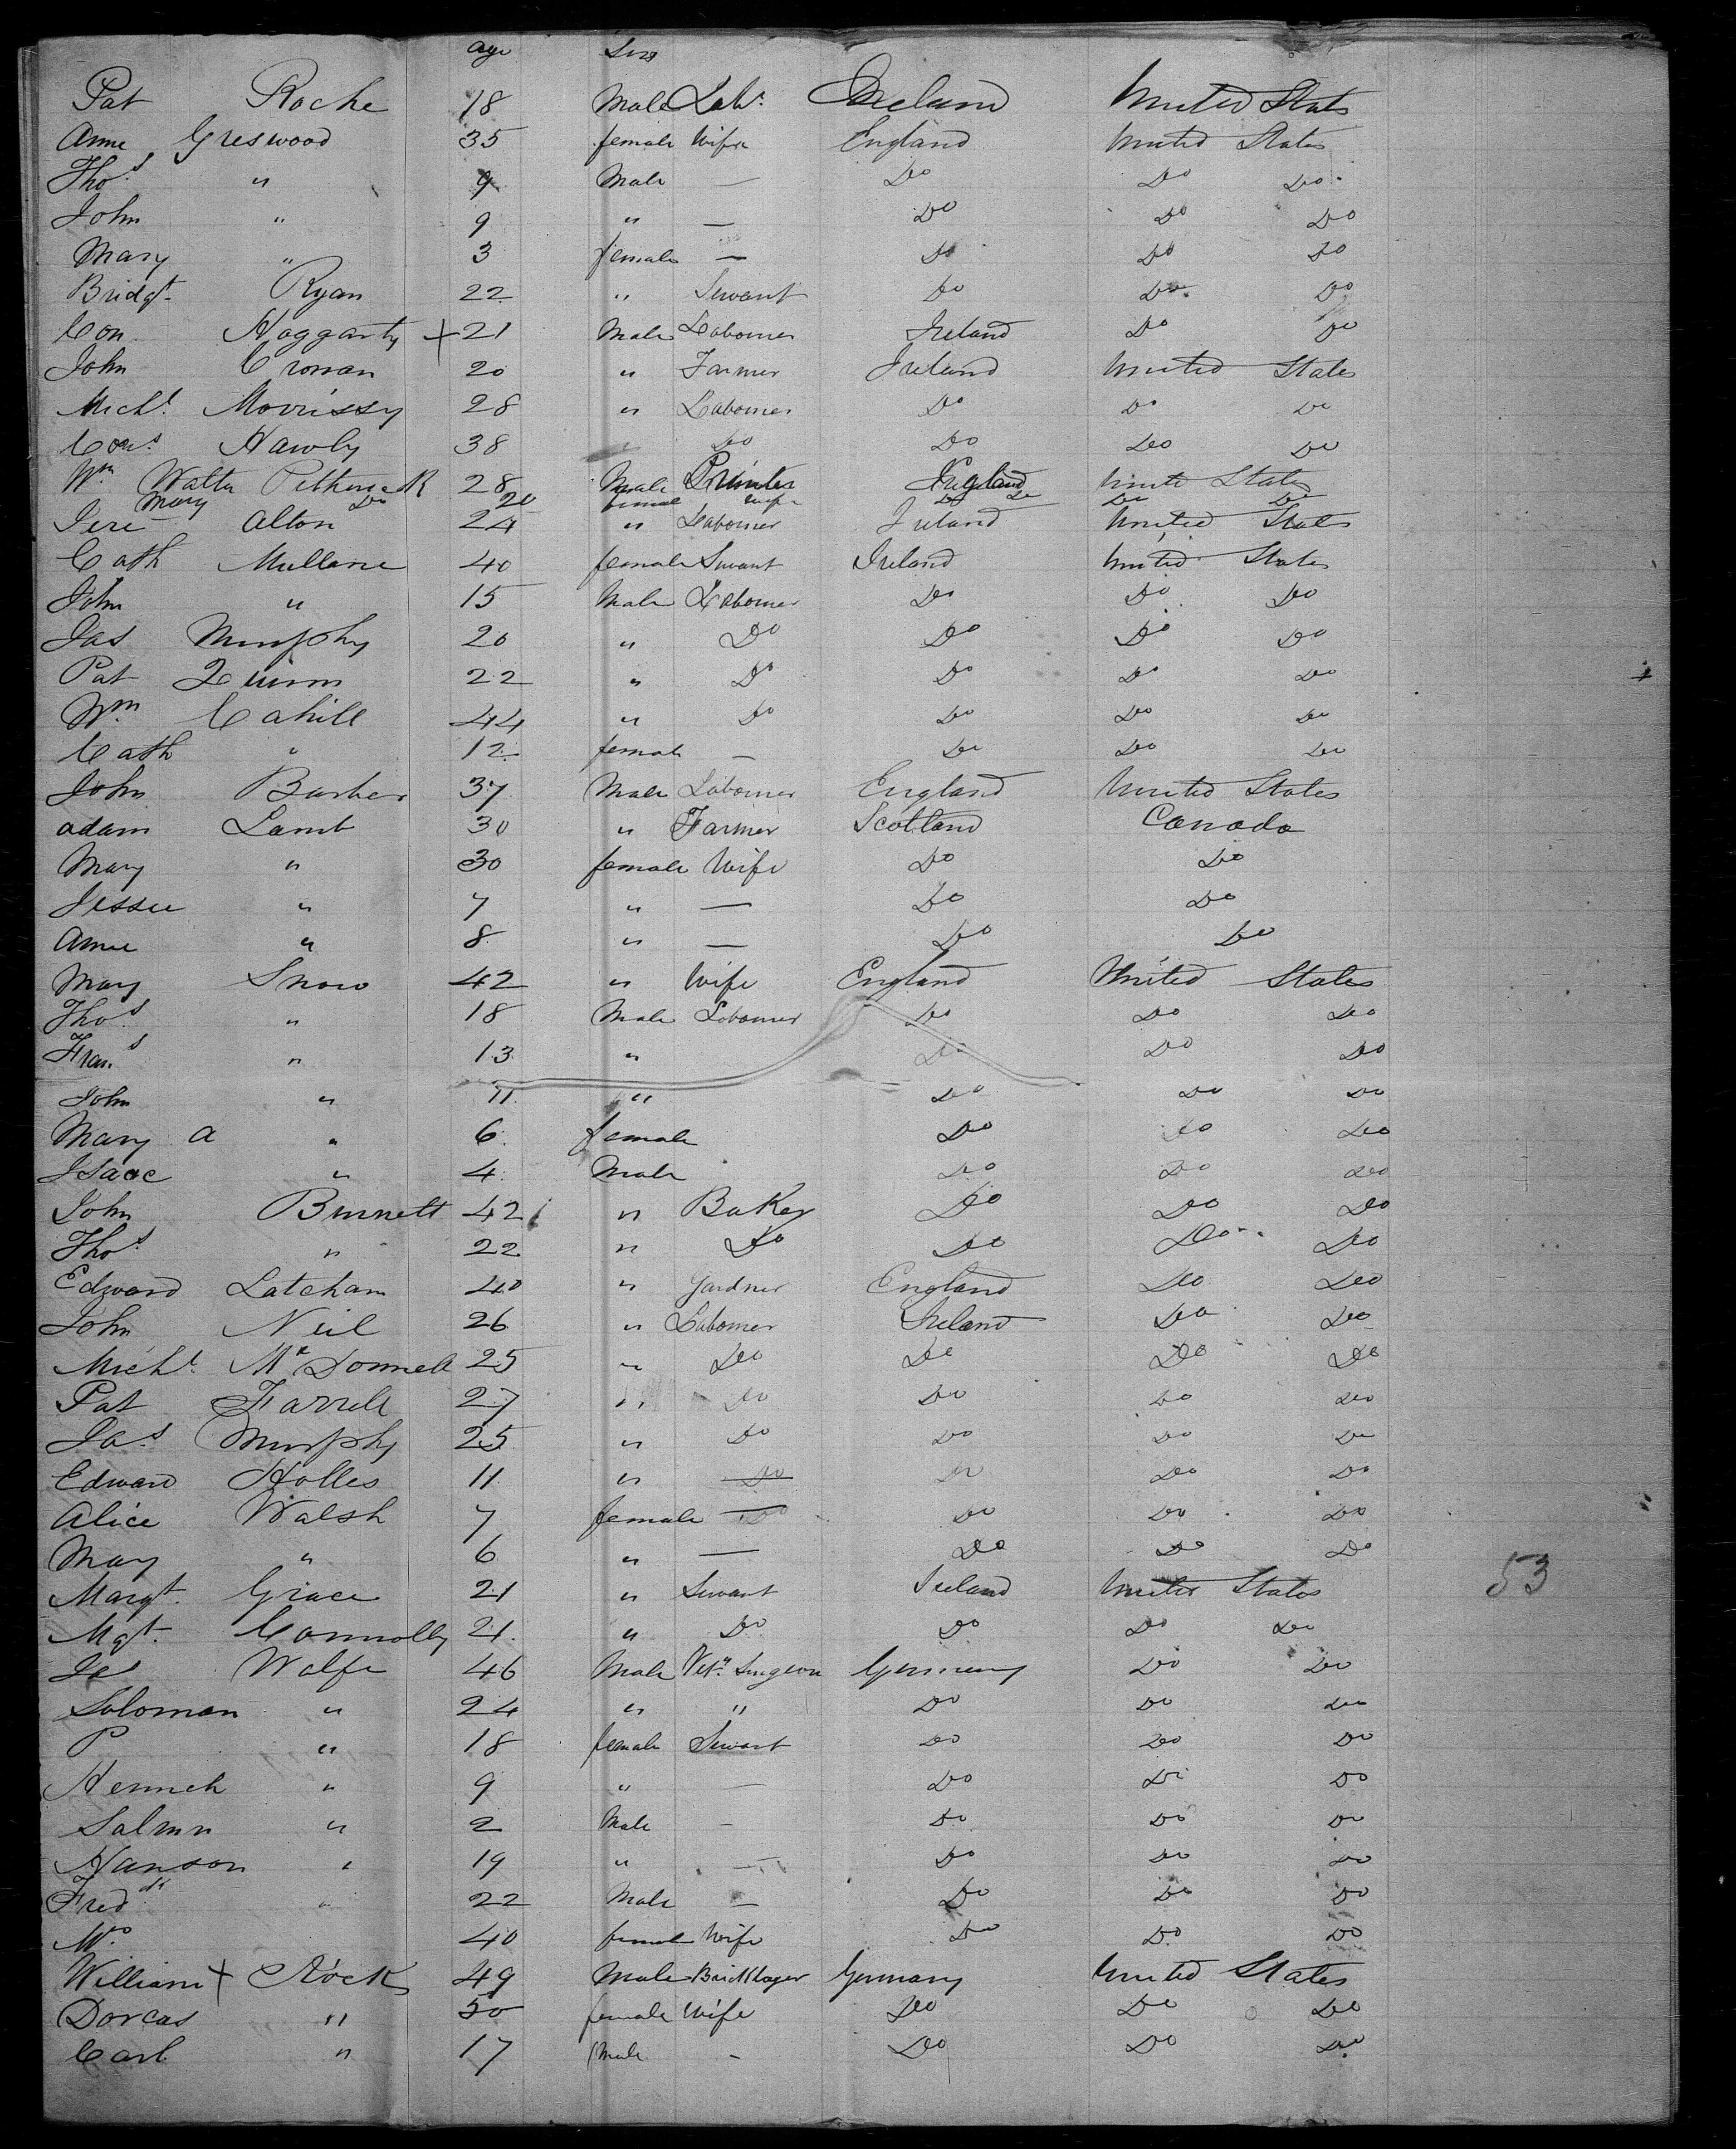 age Sex
Pat Roche 18 Male Labr. Ireland United States
Anne Greswood 35 female Wife England United States
Thos. " 9 Male — Do Do Do
John " 9 " — Do Do Do
Mary " 3 female — Do Do Do
Bridgt. Ryan 22 " Servant Do Do Do
Con. Haggarty + 21 Male Labourer Ireland Do Do
John Cronan 20 " Farmer Ireland United States
Michl. Morrissy 28 " Labourer Do Do Do
Hawly 38 Do Do Do Do
Wm. Walter 28 Male England United States
Mary Do 20 female wife Do Do Do Do
Jere Alton 24 " Labourer Ireland United States
Cath Mullane 40 female Servant Ireland United States
John " 15 Male Labourer Do Do Do
Jas Murphy 20 " Do Do Do Do
Pat Quinn 22 " Do Do Do Do
Wm. Cahill 44 " Do Do Do Do
Cath " 12 female — Do Do Do
John Barber 37 Male Labourer England United States
Adam Lamb 30 " Farmer Scotland Canada
Mary " 30 female Wife Do Do
Jessie " 7 " — Do Do
Anne " 8 " — Do Do
Mary Snow 42 " Wife England United States
Thos. " 18 Male Labourer Do Do Do
Frans. " 13 " Do Do Do
John " 11 " Do Do Do
Mary A " 6 female Do Do Do
Isaac " 4 Male Do Do Do
John Burnett 42 " Baker Do Do Do
Thos. " 22 " Do Do Do Do
Edward Latcham 40 " Gardner England Do Do
John Neil 26 " Labourer Ireland Do Do
Michl. Mc Donnell 25 " Do Do Do Do
Pat Farrell 27 " Do Do Do Do
Jas. Murphy 25 " Do Do Do Do
Edward Holles 11 " Do Do Do Do
Alice Walsh 7 female — Do Do Do Do
May " 6 " — Do Do Do
Margt. Grace 21 " Servant Ireland United States
53
Mgt. Connolly 21 " Do Do Do Do
Walfe 46 Male Vety. Surgeon Germany Do Do
Soloman " 24 " " Do Do Do
P " 18 female Servant Do Do Do
" 9 " — Do Do Do
Salmn " 2 Male — Do Do Do
Hanson " 19 " — Do Do Do
Fredk " 22 Male — Do Do Do
40 female Wife Do Do Do
William + 49 Male Bricklayer Germany United States
Dorcas " 50 female Wife Do Do Do
Carl " 17 Male — Do Do Do